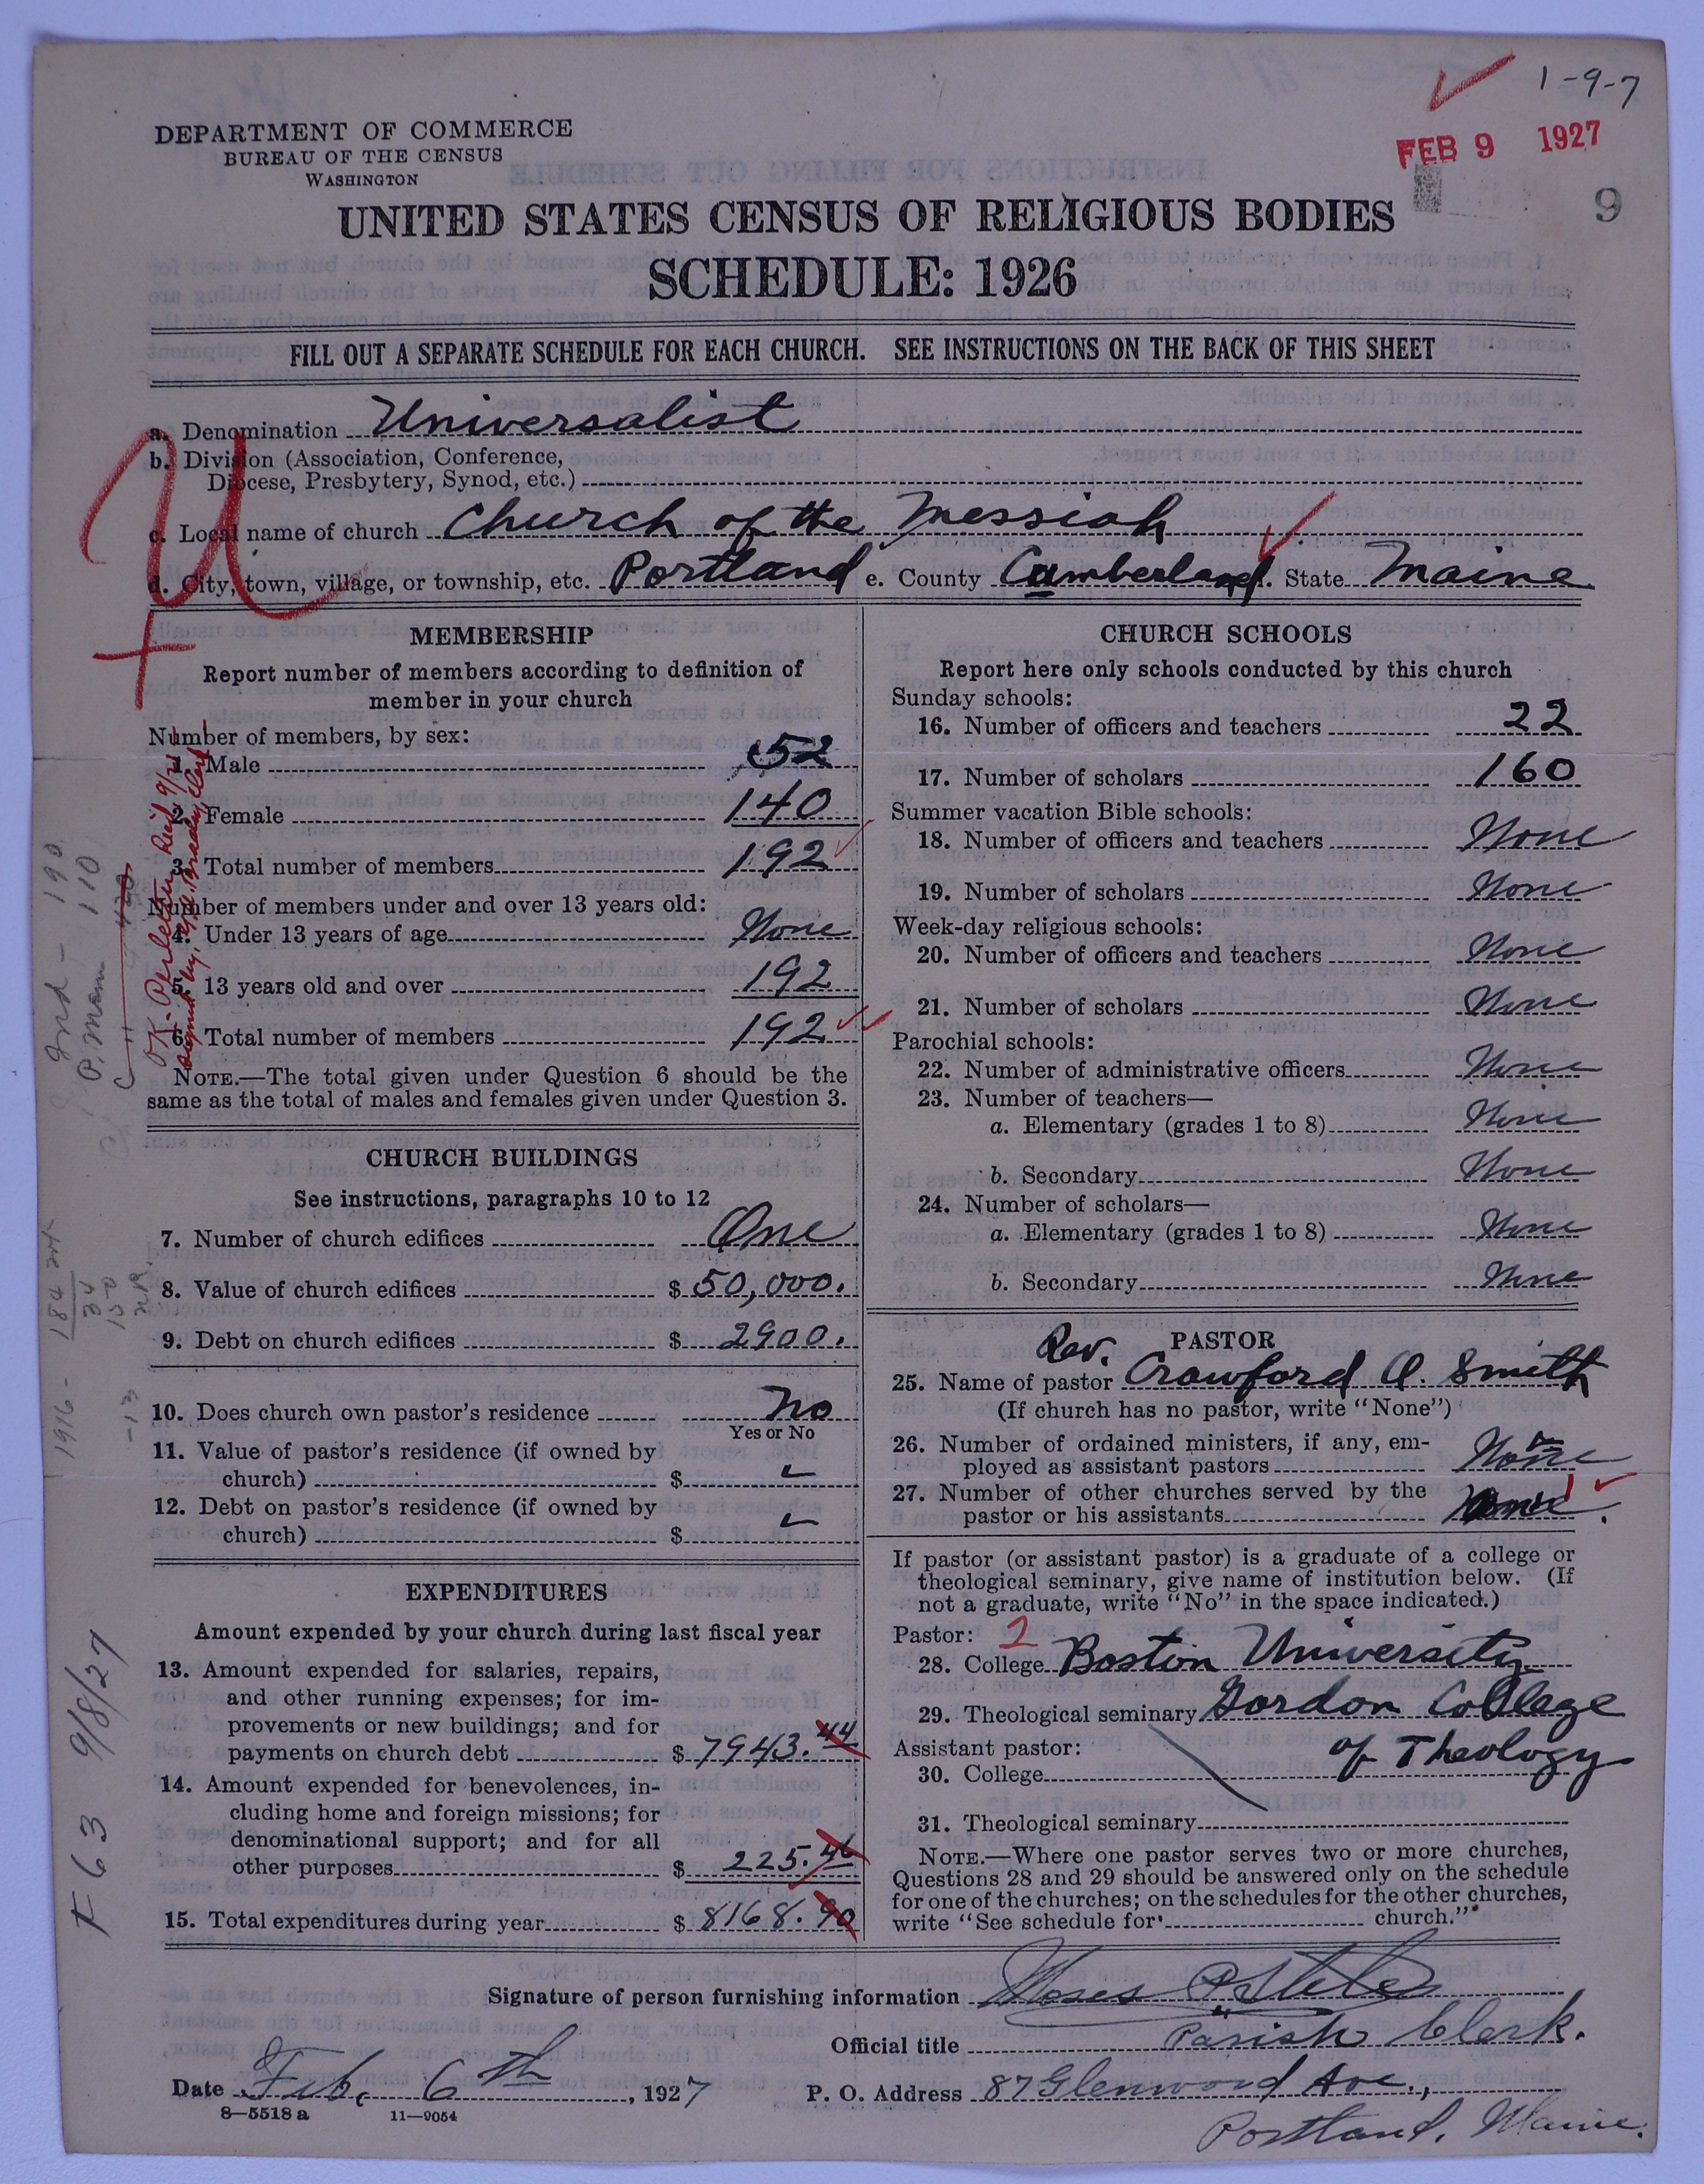 1-9-7
FEB 9 1927
9
DEPARTMENT OF COMMERCE
BUREAU OF THE CENSUS
WASHINGTON
UNITED STATES CENSUS OF RELIGIOUS BODIES
SCHEDULE: 1926
FILL OUT A SEPARATE SCHEDULE FOR EACH CHURCH. SEE INSTRUCTIONS ON THE BACK OF THIS SHEET
a. Denomination Universalist
b. Division (Association, Conference,
Diocese, Presbytery, Synod, etc.)
c. Local name of church Church of the Messiah
d. City, town, village, or township, etc. Portland e. County Cumberland f. State Maine
U
MEMBERSHIP
Report number of members according to definition of
member in your church
Number of members, by sex:
1. Male 52
2. Female 140
3. Total number of members 192
Number of members under and over 13 years old:
4. Under 13 years of age None
5. 13 years old and over 192
6. Total number of members 192
NOTE.—The total given under Question 6 should be the
same as the total of males and females given under Question 3.
CHURCH BUILDINGS
See instructions, paragraphs 10 to 12
7. Number of church edifices One
8. Value of church edifices $ 50,000.
9. Debt on church edifices $ 2900.
10. Does church own pastor's residence No
Yes or No
11. Value of pastor's residence (if owned by
church) $
12. Debt on pastor's residence (if owned by
church) $
EXPENDITURES
Amount expended by your church during last fiscal year
13. Amount expended for salaries, repairs,
and other running expenses; for im-
provements or new buildings; and for
payments on church debt $ 7943.44
14. Amount expended for benevolences, in-
cluding home and foreign missions; for
denominational support; and for all
other purposes $ 225.46
15. Total expenditures during year $ 8168.90
CHURCH SCHOOLS
Report here only schools conducted by this church
Sunday schools:
16. Number of officers and teachers 22
17. Number of scholars 160
Summer vacation Bible schools:
18. Number of officers and teachers None
19. Number of scholars None
Week-day religious schools:
20. Number of officers and teachers None
21. Number of scholars None
Parochial schools:
22. Number of administrative officers None
23. Number of teachers—
a. Elementary (grades 1 to 8) None
b. Secondary None
24. Number of scholars—
a. Elementary (grades 1 to 8) None
b. Secondary None
PASTOR
Rev.
25. Name of pastor Crawford O. Smith
(If church has no pastor, write "None")
26. Number of ordained ministers, if any, em-
ployed as assistant pastors None
27. Number of other churches served by the
pastor or his assistants None.
If pastor (or assistant pastor) is a graduate of a college or
theological seminary, give name of institution below. (If
not a graduate, write "No" in the space indicated.)
Pastor: 2
28. College Boston University
29. Theological seminary Gordon College
Assistant pastor: of Theology
30. College
31. Theological seminary
NOTE.—Where one pastor serves two or more churches,
Questions 28 and 29 should be answered only on the schedule
for one of the churches; on the schedules for the other churches,
write "See schedule for church."
Signature of person furnishing information Moses P.
Official title Parish Clerk.
Date Feb. 6th, 1927 P. O. Address 87 Glenwood Ave.,
Portland, Maine.
8—5518 a 11—9054
OK-Per letter Rec'd 9/
signed by
Ind - 190
P. Mem 110
1916 - 184
34
150
-13
F 63 9/8/27